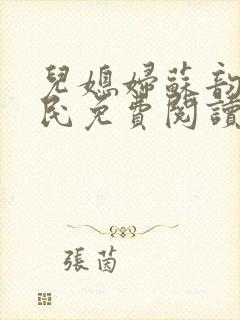 兒媳婦蘇韵
民免費閱讀
張茵